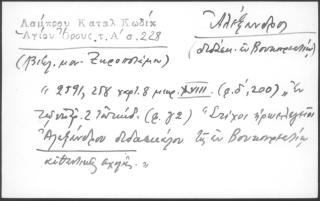 Λάμπρου Καταλ Κωδίκ
Ἁγίου Ὄρους, τ. Α' σ. 228
Ἀλέξανδρος
(διδάσκ. ἐν Βουκουρεστίῳ)
(Βιβλ. μον. Ξηροποτάμου)
" 2591, 258 χαρτ. 8 μικρ. XVIII. (φ. δ', 200) " Ἐν
2 (φ. γ2) " Στίχοι ἡρωελεγεῖοι
Ἀλεξάνδρου διδασκάλου τῆς ἐν Βουκουρεστίῳ
αὐθεντικῆς σχολῆς. "